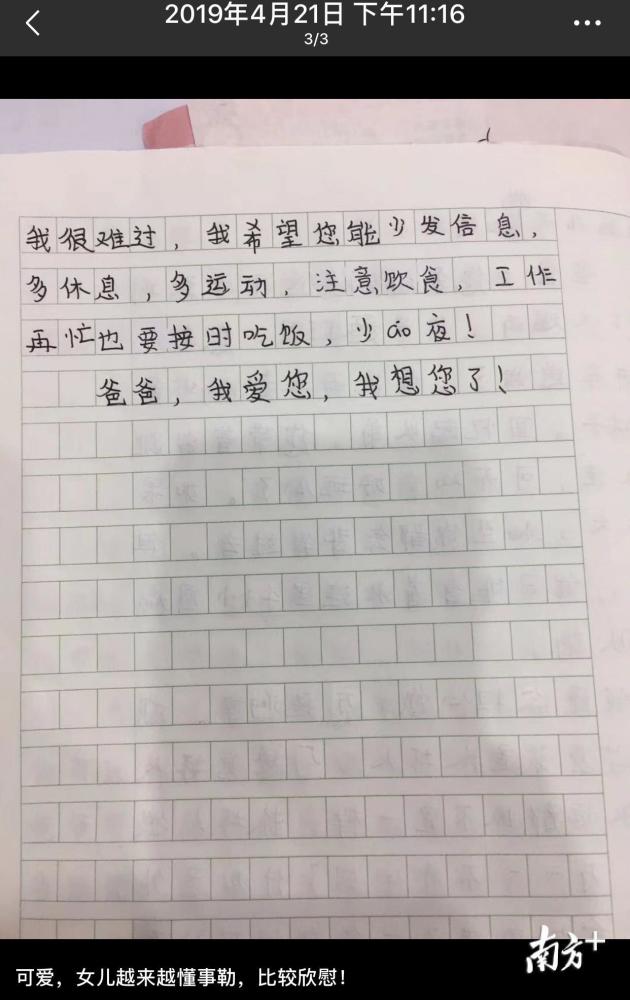 2019年4月21日 下午11:16
3/3
我很难过，我希望您能少发信息，
多休息，多运动，注意饮食，工作
再忙也要按时吃饭，少ao夜！
爸爸，我爱您，我想您了！
南方+
可爱，女儿越来越懂事勒，比较欣慰！